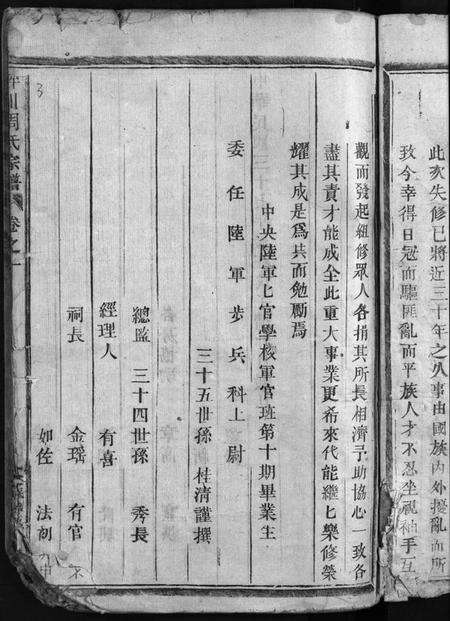 此亥失修已將近三十年之久事由國族內外擾亂而所
致今幸得日冠而驅匪亂而平族人才不忍坐視袖手互
觀而發起組修眾人各捐其所長相濟予助協心一致各
盡其責才能成全此重大事業更希來代能繼七樂修榮
耀其成是為其而勉勵焉
中央陸軍七官學校軍官班第十期畢業生
委任陸軍步兵科上尉
三十五世孫 桂清謹撰
總監 三十四世孫 秀長
經理人 有喜
祠長 金瑤 有官
如佐 法初
川周氏宗譜 卷之一
3